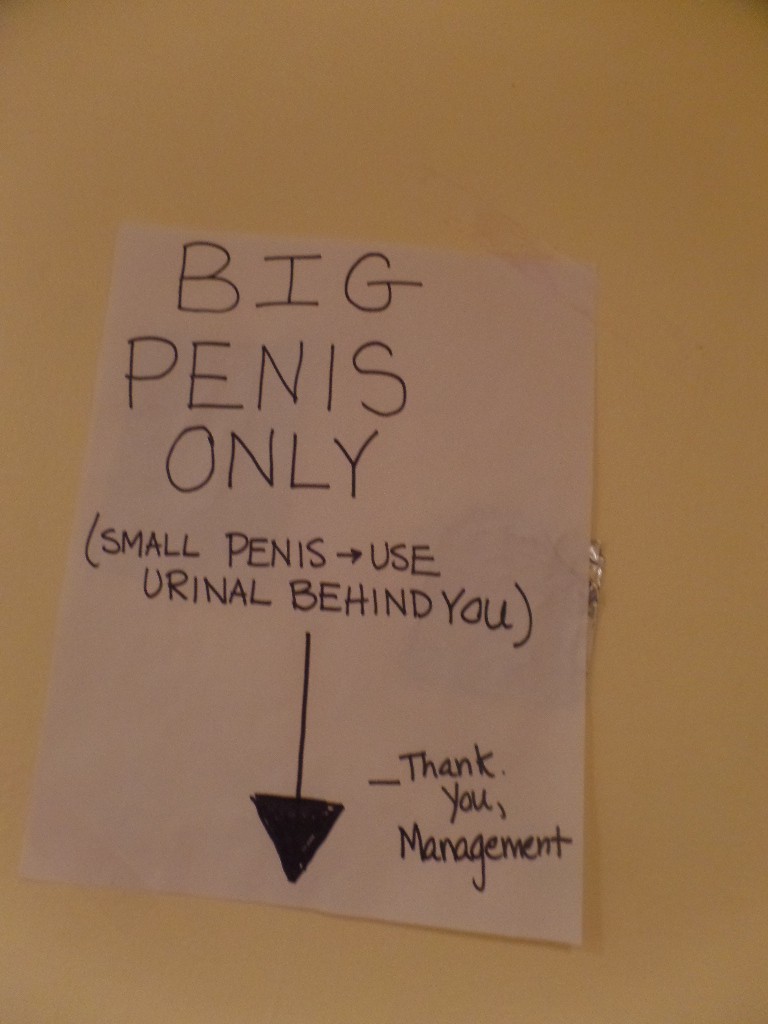 BIG
PENIS
ONLY
(SMALL PENIS → USE
URINAL BEHIND YOU)
— Thank.
You,
Management